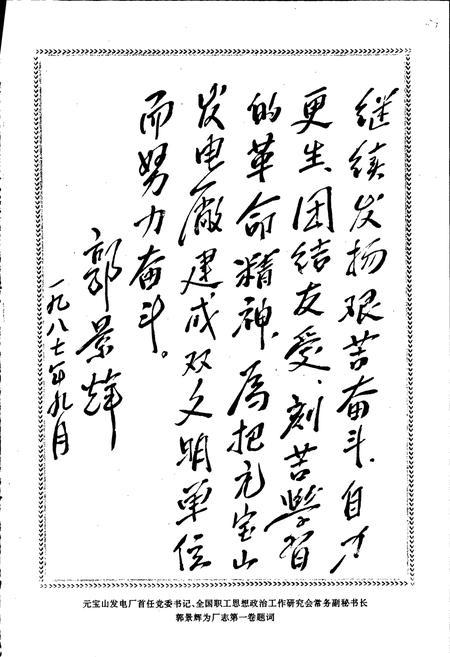 继续发扬艰苦奋斗、自力
更生、团结友爱、刻苦学习
的革命精神，为把元宝山
发电厂建成双文明单位
而努力奋斗。
郭景辉
一九八七年九月
元宝山发电厂首任党委书记、全国职工思想政治工作研究会常务副秘书长
郭景辉为厂志第一卷题词